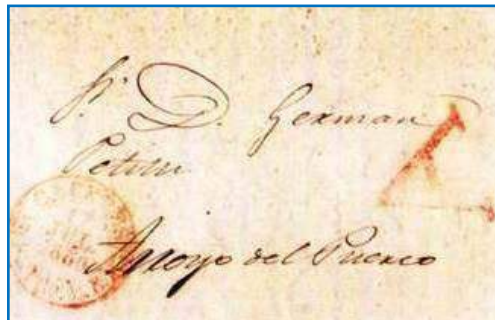 Sr. D. German
Petini
A
Arroyo del Puerco